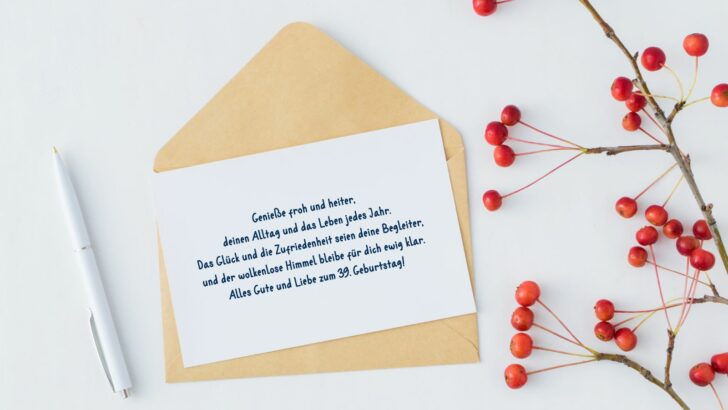 Genieße froh und heiter,
deinen Alltag und das Leben jedes Jahr.
Das Glück und die Zufriedenheit seien deine Begleiter,
und der wolkenlose Himmel bleibe für dich ewig klar.
Alles Gute und Liebe zum 39. Geburtstag!